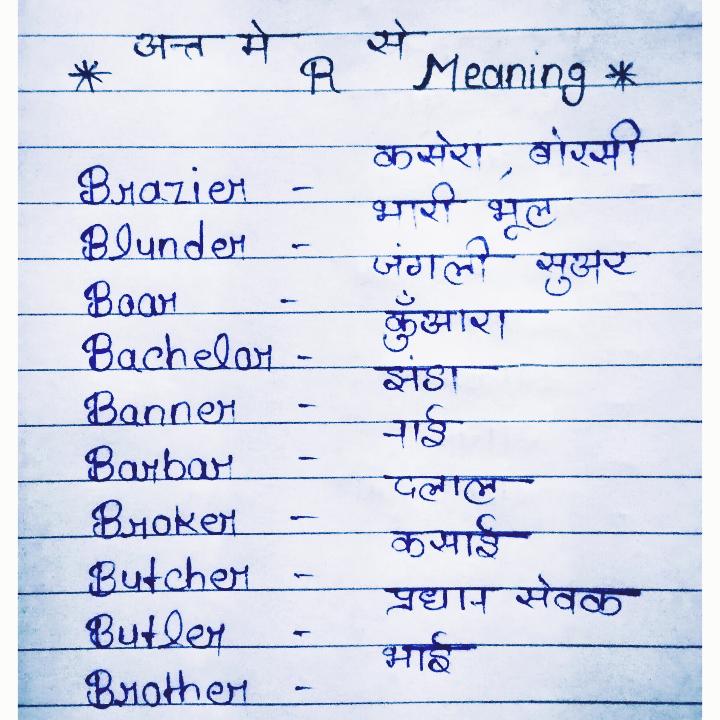 * अन्त मे R से Meaning *
Brazier - कसेरा, बोरसी
Blunder - भारी भूल
Boar - जंगली सुअर
Bachelor - कुँआरा
Banner - झंडा
Barbar - नाई
Broker - दलाल
Butcher - कसाई
Butler - प्रधान सेवक
Brother - भाई